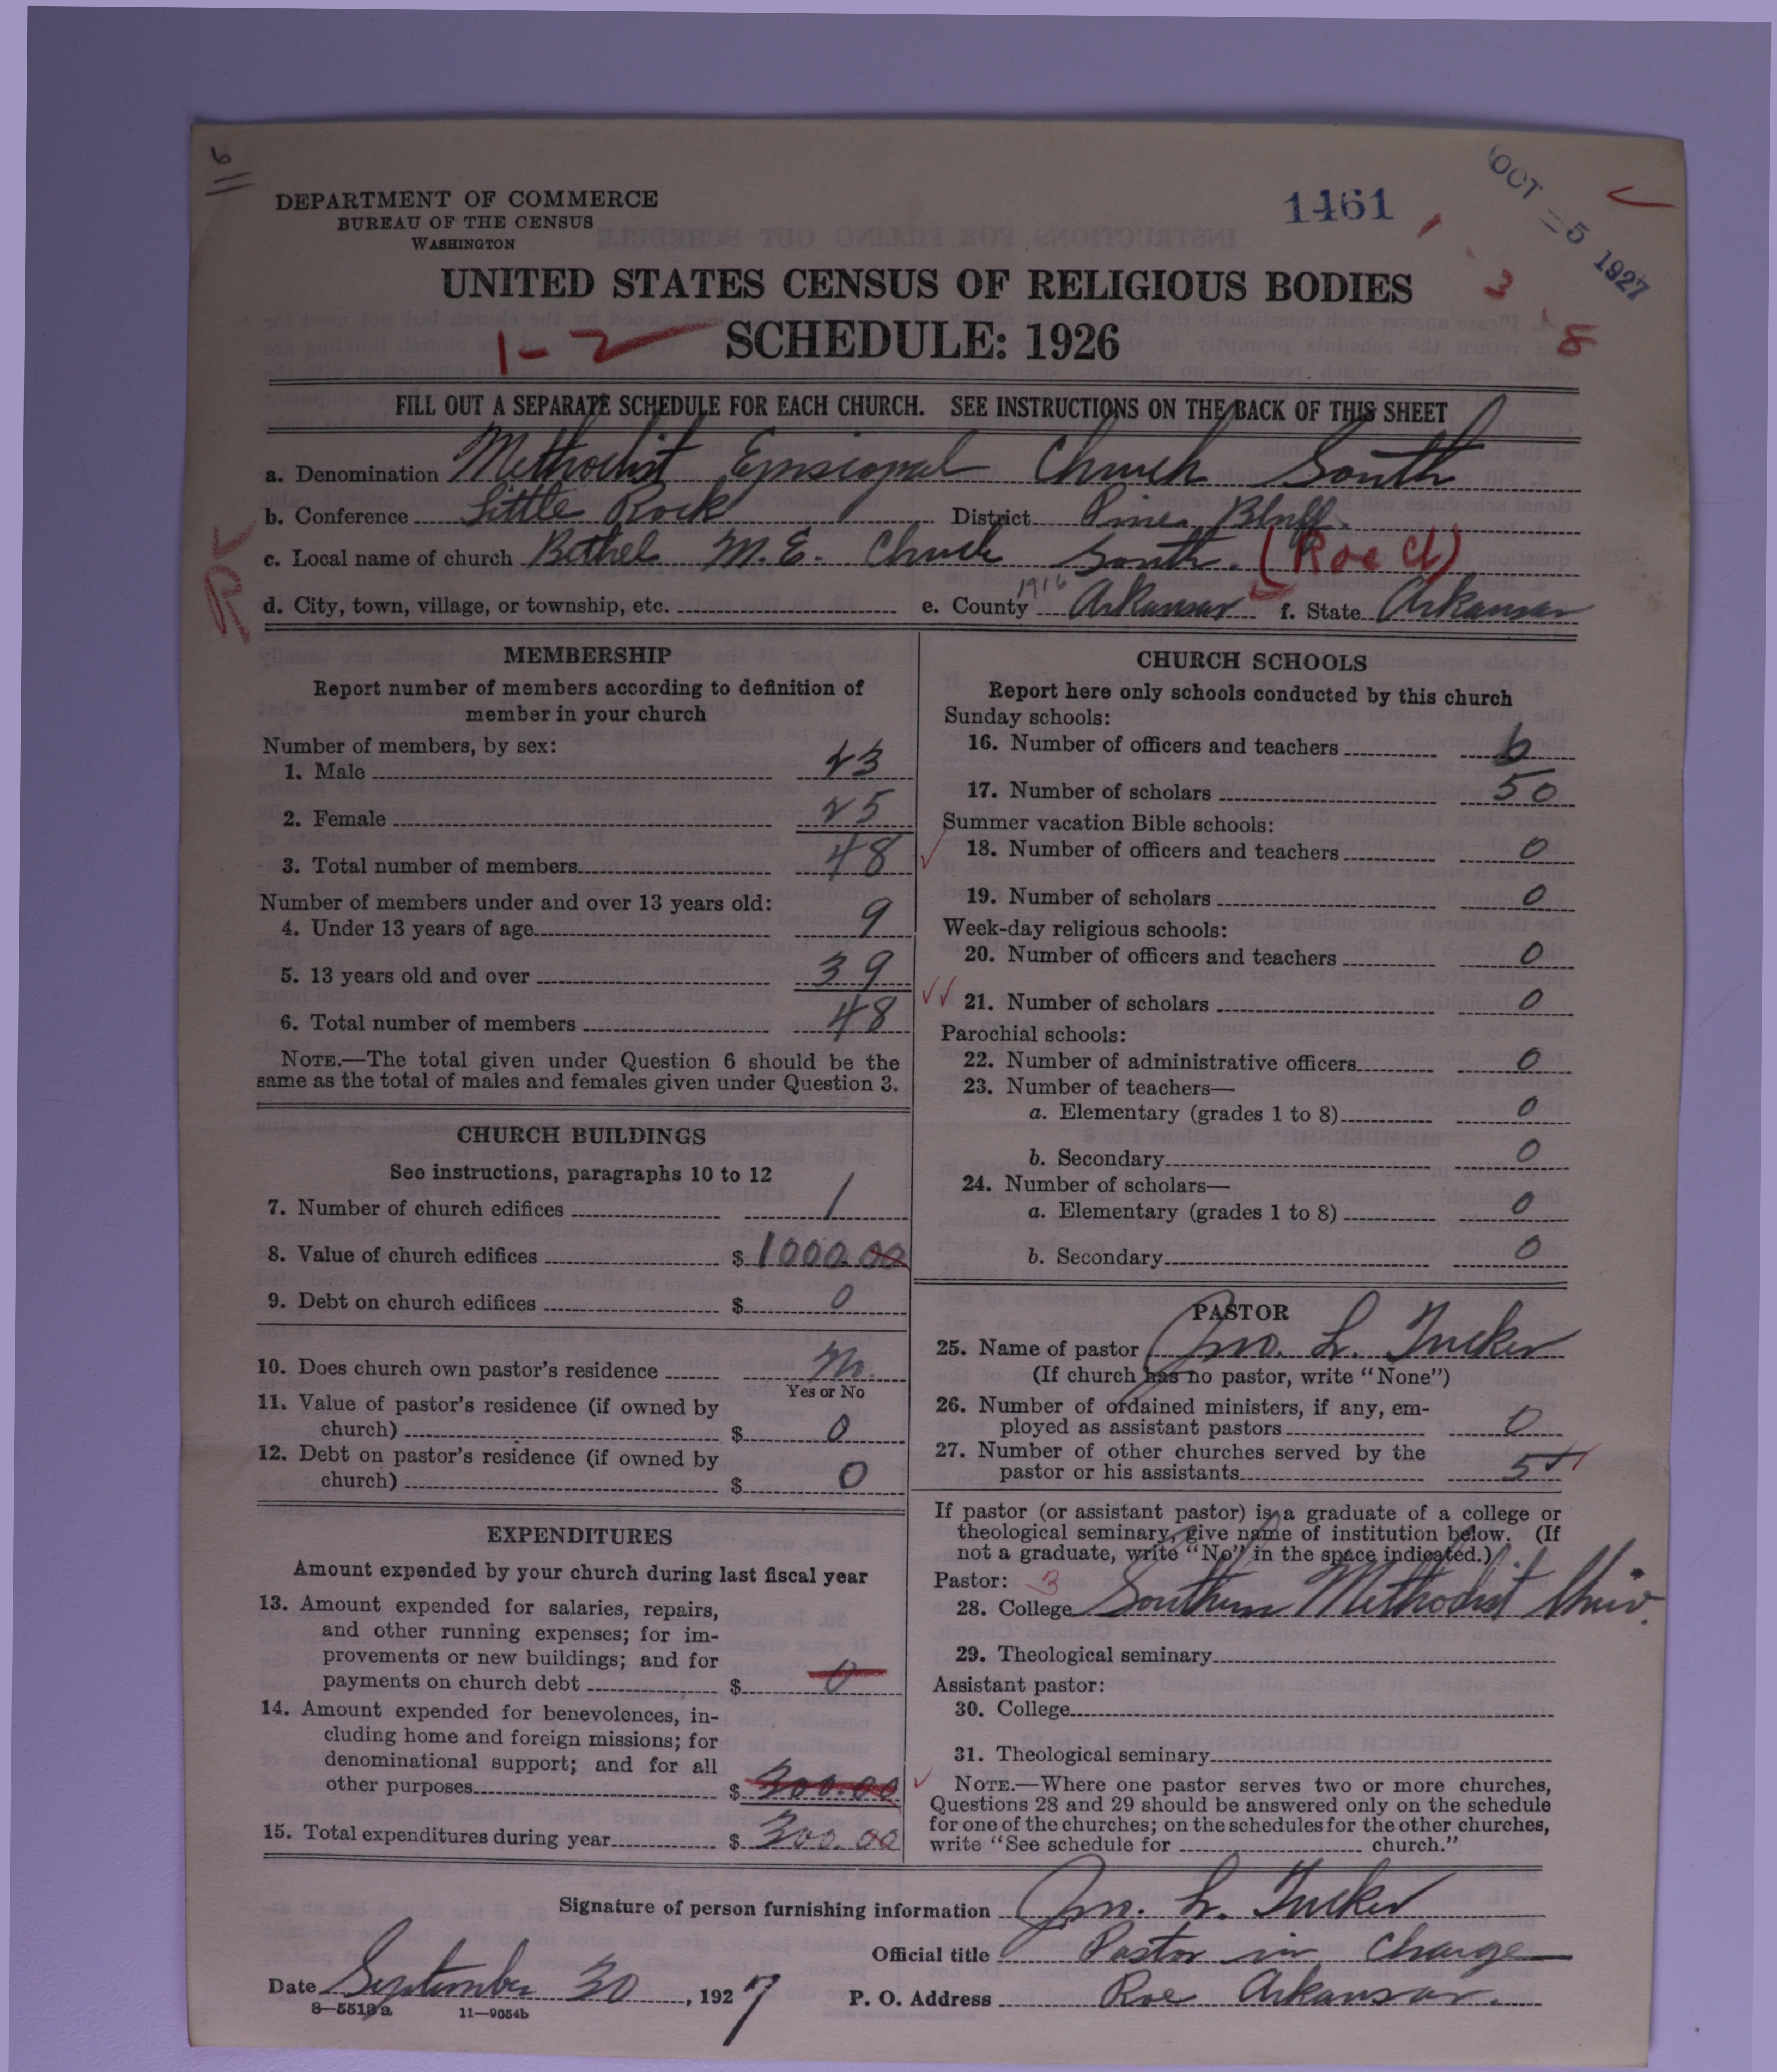 6
DEPARTMENT OF COMMERCE
BUREAU OF THE CENSUS
WASHINGTON
1461
OCT - 5 1927
UNITED STATES CENSUS OF RELIGIOUS BODIES
3
1-2 SCHEDULE: 1926
8
FILL OUT A SEPARATE SCHEDULE FOR EACH CHURCH. SEE INSTRUCTIONS ON THE BACK OF THIS SHEET
a. Denomination Methodist Episcopal Church South
b. Conference Little Rock District Pine Bluff.
c. Local name of church Bethel M.E. Church South. (Roe Ct)
R
1916
d. City, town, village, or township, etc. e. County Arkansas f. State Arkansas
MEMBERSHIP
Report number of members according to definition of
member in your church
Number of members, by sex:
1. Male 23
2. Female 25
3. Total number of members 48
Number of members under and over 13 years old:
4. Under 13 years of age 9
5. 13 years old and over 39
6. Total number of members 48
NOTE.—The total given under Question 6 should be the
same as the total of males and females given under Question 3.
CHURCH BUILDINGS
See instructions, paragraphs 10 to 12
7. Number of church edifices 1
8. Value of church edifices $ 1000.00
9. Debt on church edifices $ 0
10. Does church own pastor's residence No.
Yes or No
11. Value of pastor's residence (if owned by
church) $ 0
12. Debt on pastor's residence (if owned by
church) $ 0
EXPENDITURES
Amount expended by your church during last fiscal year
13. Amount expended for salaries, repairs,
and other running expenses; for im-
provements or new buildings; and for
payments on church debt $ 0
14. Amount expended for benevolences, in-
cluding home and foreign missions; for
denominational support; and for all
other purposes $ 300.00
15. Total expenditures during year $ 300.00
CHURCH SCHOOLS
Report here only schools conducted by this church
Sunday schools:
16. Number of officers and teachers 6
17. Number of scholars 50
Summer vacation Bible schools:
18. Number of officers and teachers 0
19. Number of scholars 0
Week-day religious schools:
20. Number of officers and teachers 0
21. Number of scholars 0
Parochial schools:
22. Number of administrative officers 0
23. Number of teachers—
a. Elementary (grades 1 to 8) 0
b. Secondary 0
24. Number of scholars—
a. Elementary (grades 1 to 8) 0
b. Secondary 0
PASTOR
25. Name of pastor Jno. L. Tucker
(If church has no pastor, write "None")
26. Number of ordained ministers, if any, em-
ployed as assistant pastors 0
27. Number of other churches served by the
pastor or his assistants 5
If pastor (or assistant pastor) is a graduate of a college or
theological seminary, give name of institution below. (If
not a graduate, write "No" in the space indicated.)
Pastor: 3
28. College Southern Methodist Univ.
29. Theological seminary
Assistant pastor:
30. College
31. Theological seminary
NOTE.—Where one pastor serves two or more churches,
Questions 28 and 29 should be answered only on the schedule
for one of the churches; on the schedules for the other churches,
write "See schedule for church."
Signature of person furnishing information Jno. L. Tucker
Official title Pastor in Charge
Date September 30, 1927 P. O. Address Roe Arkansas.
8—5519a 11—9054b